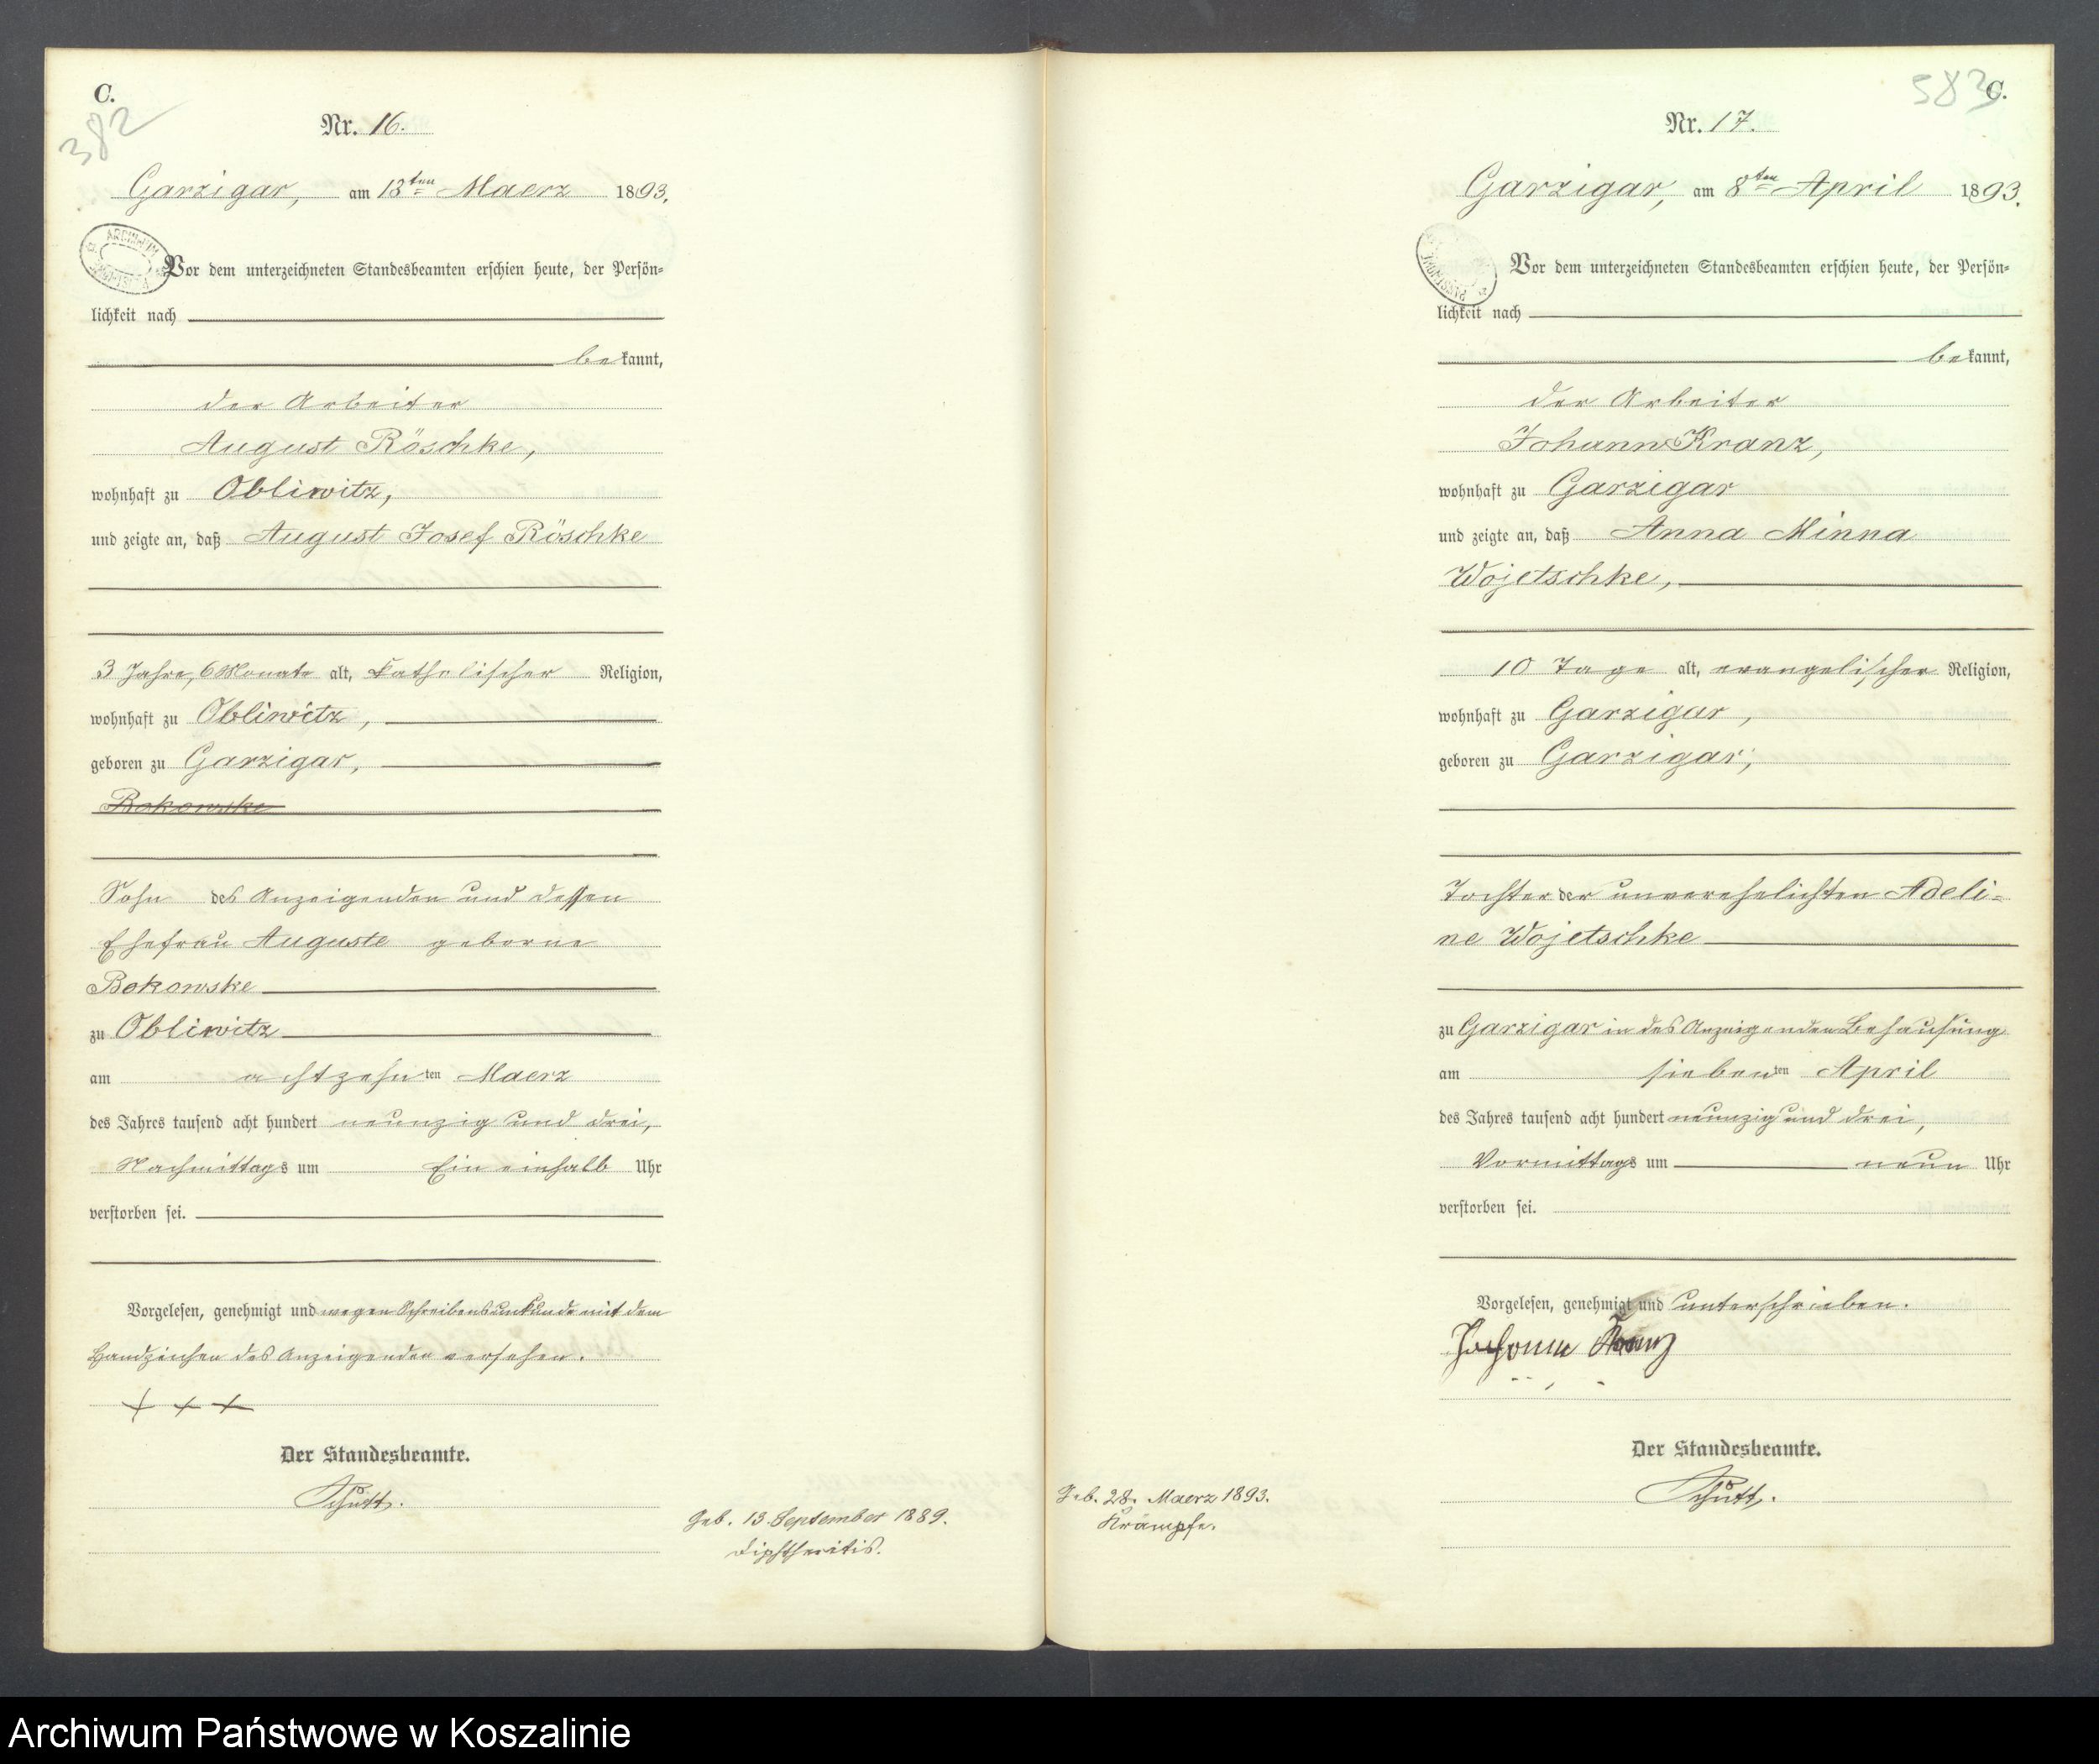 C.
382
Nr. 16.
Garzigar, am 18ten Maerz 1893.
Vor dem unterzeichneten Standesbeamten erschien heute, der Persön=
lichkeit nach
bekannt,
der Arbeiter
August Röschke,
wohnhaft zu Obliwitz,
und zeigte an, daß August Josef Röschke
3 Jahre, 6 Monate alt, katholischer Religion,
wohnhaft zu Obliwitz,
geboren zu Garzigar,
Bokowske
Sohn des Anzeigenden und dessen
Ehefrau Auguste geborne
Bokowske
zu Obliwitz
am achtzehnten Maerz
des Jahres tausend acht hundert neunzig und drei,
Nachmittags um Ein einhalb Uhr
verstorben sei.
Vorgelesen, genehmigt und wegen Schreibensunkunde mit dem
Handzeichen des Anzeigenden versehen.
+ + +
Der Standesbeamte.
Schütt.
Geb. 13. September 1889.
Diphtheritis.
583
C.
Nr. 17.
Garzigar, am 8ten April 1893.
Vor dem unterzeichneten Standesbeamten erschien heute, der Persön=
lichkeit nach
bekannt,
der Arbeiter
Johann Kranz,
wohnhaft zu Garzigar
und zeigte an, daß Anna Minna
Wojetschke,
10 Tage alt, evangelischer Religion,
wohnhaft zu Garzigar,
geboren zu Garzigar,
Tochter der unverehelichten Adeli=
ne Wojetschke
zu Garzigar in des Anzeigenden Behausung
am siebenten April
des Jahres tausend acht hundert neunzig und drei,
Vormittags um neun Uhr
verstorben sei.
Vorgelesen, genehmigt und unterschrieben.
Johann Kranz
Der Standesbeamte.
Schütt.
Geb. 28. Maerz 1893.
Krämpfe.
Archiwum Państwowe w Koszalinie